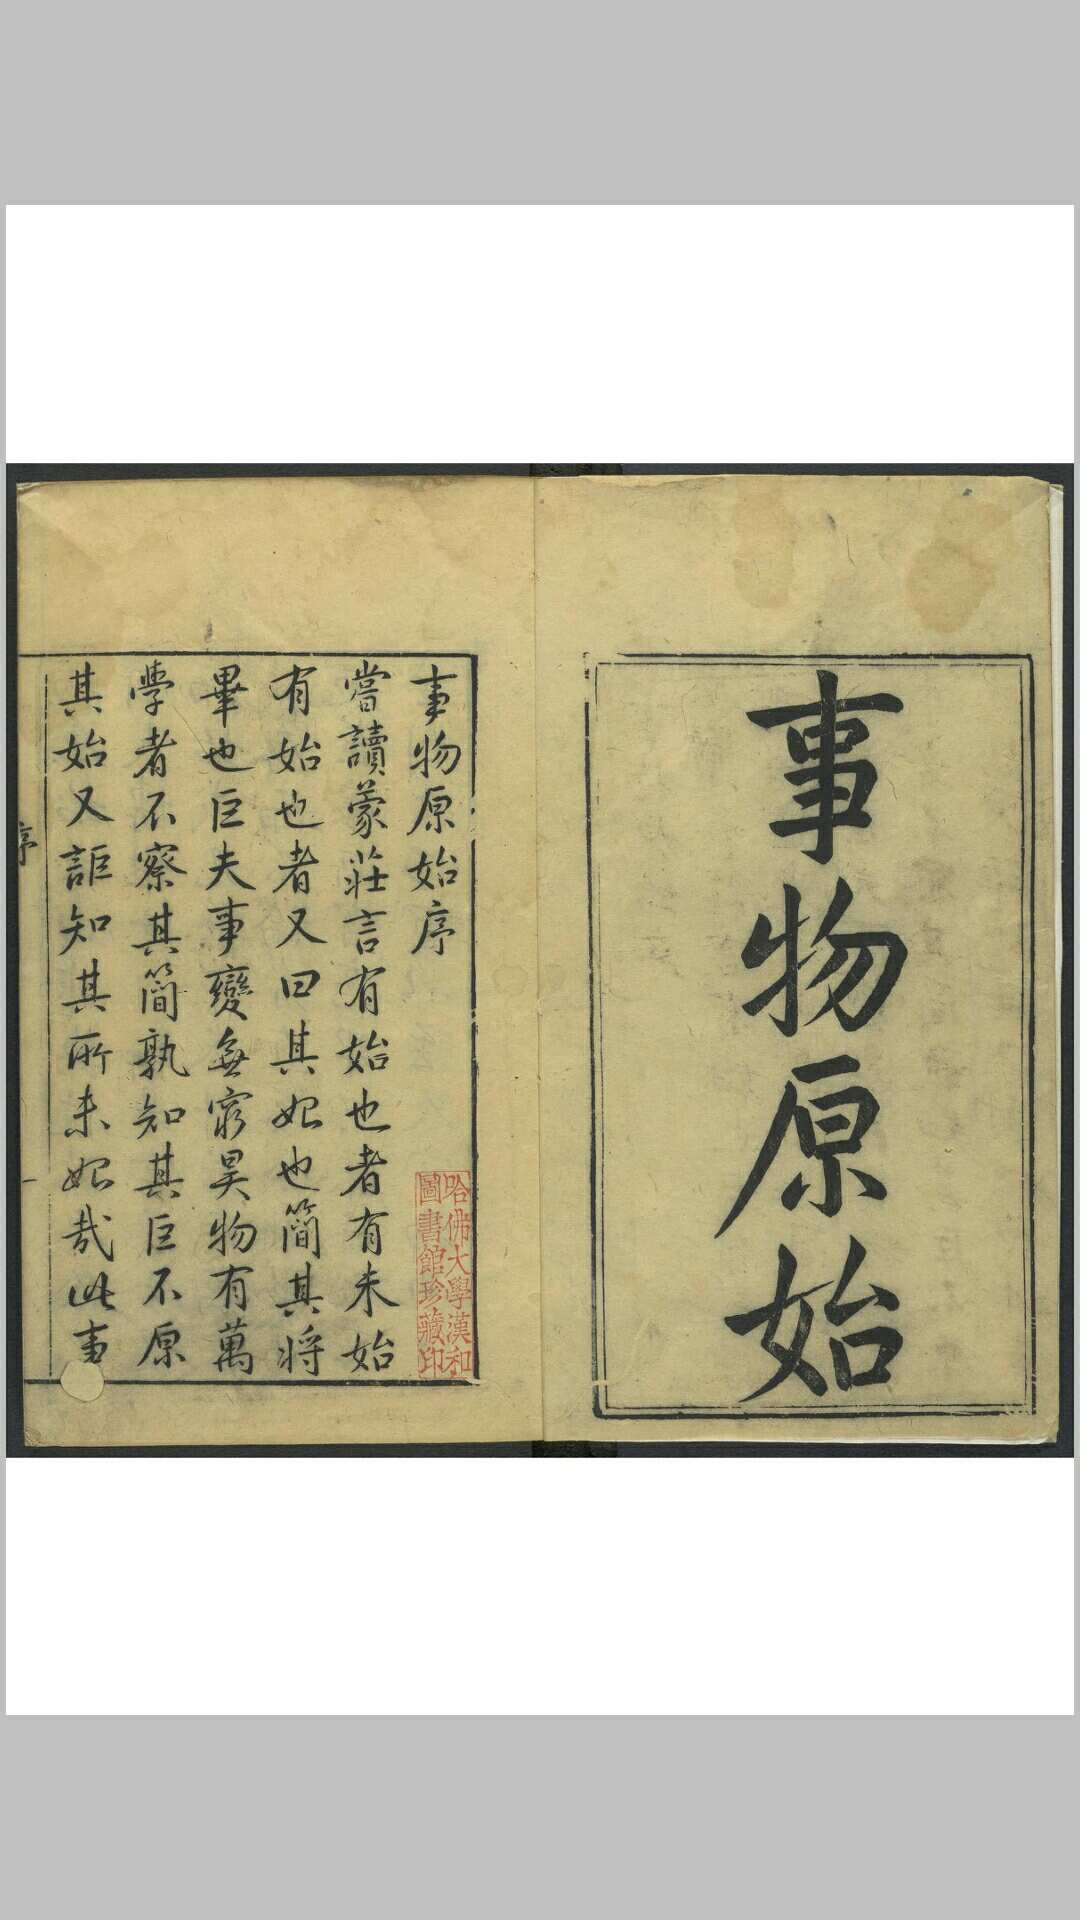 事物原始
事物原始序
嘗讀蒙莊言有始也者有未始
有始也者又曰其始也簡其將
畢也巨夫事變無窮昊物有萬
學者不察其簡孰知其巨不原
其始又詎知其所未始哉此事
序
一
哈佛大學漢和
圖書館珍藏印